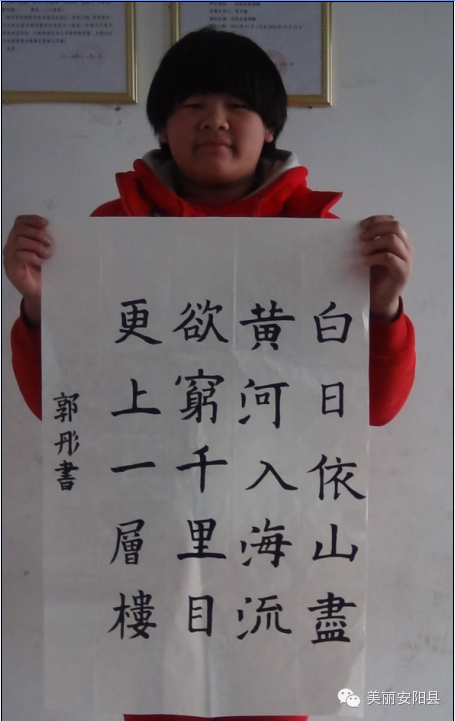 白日依山盡
黄河入海流
欲窮千里目
更上一層樓
郭彤書
美丽安阳县